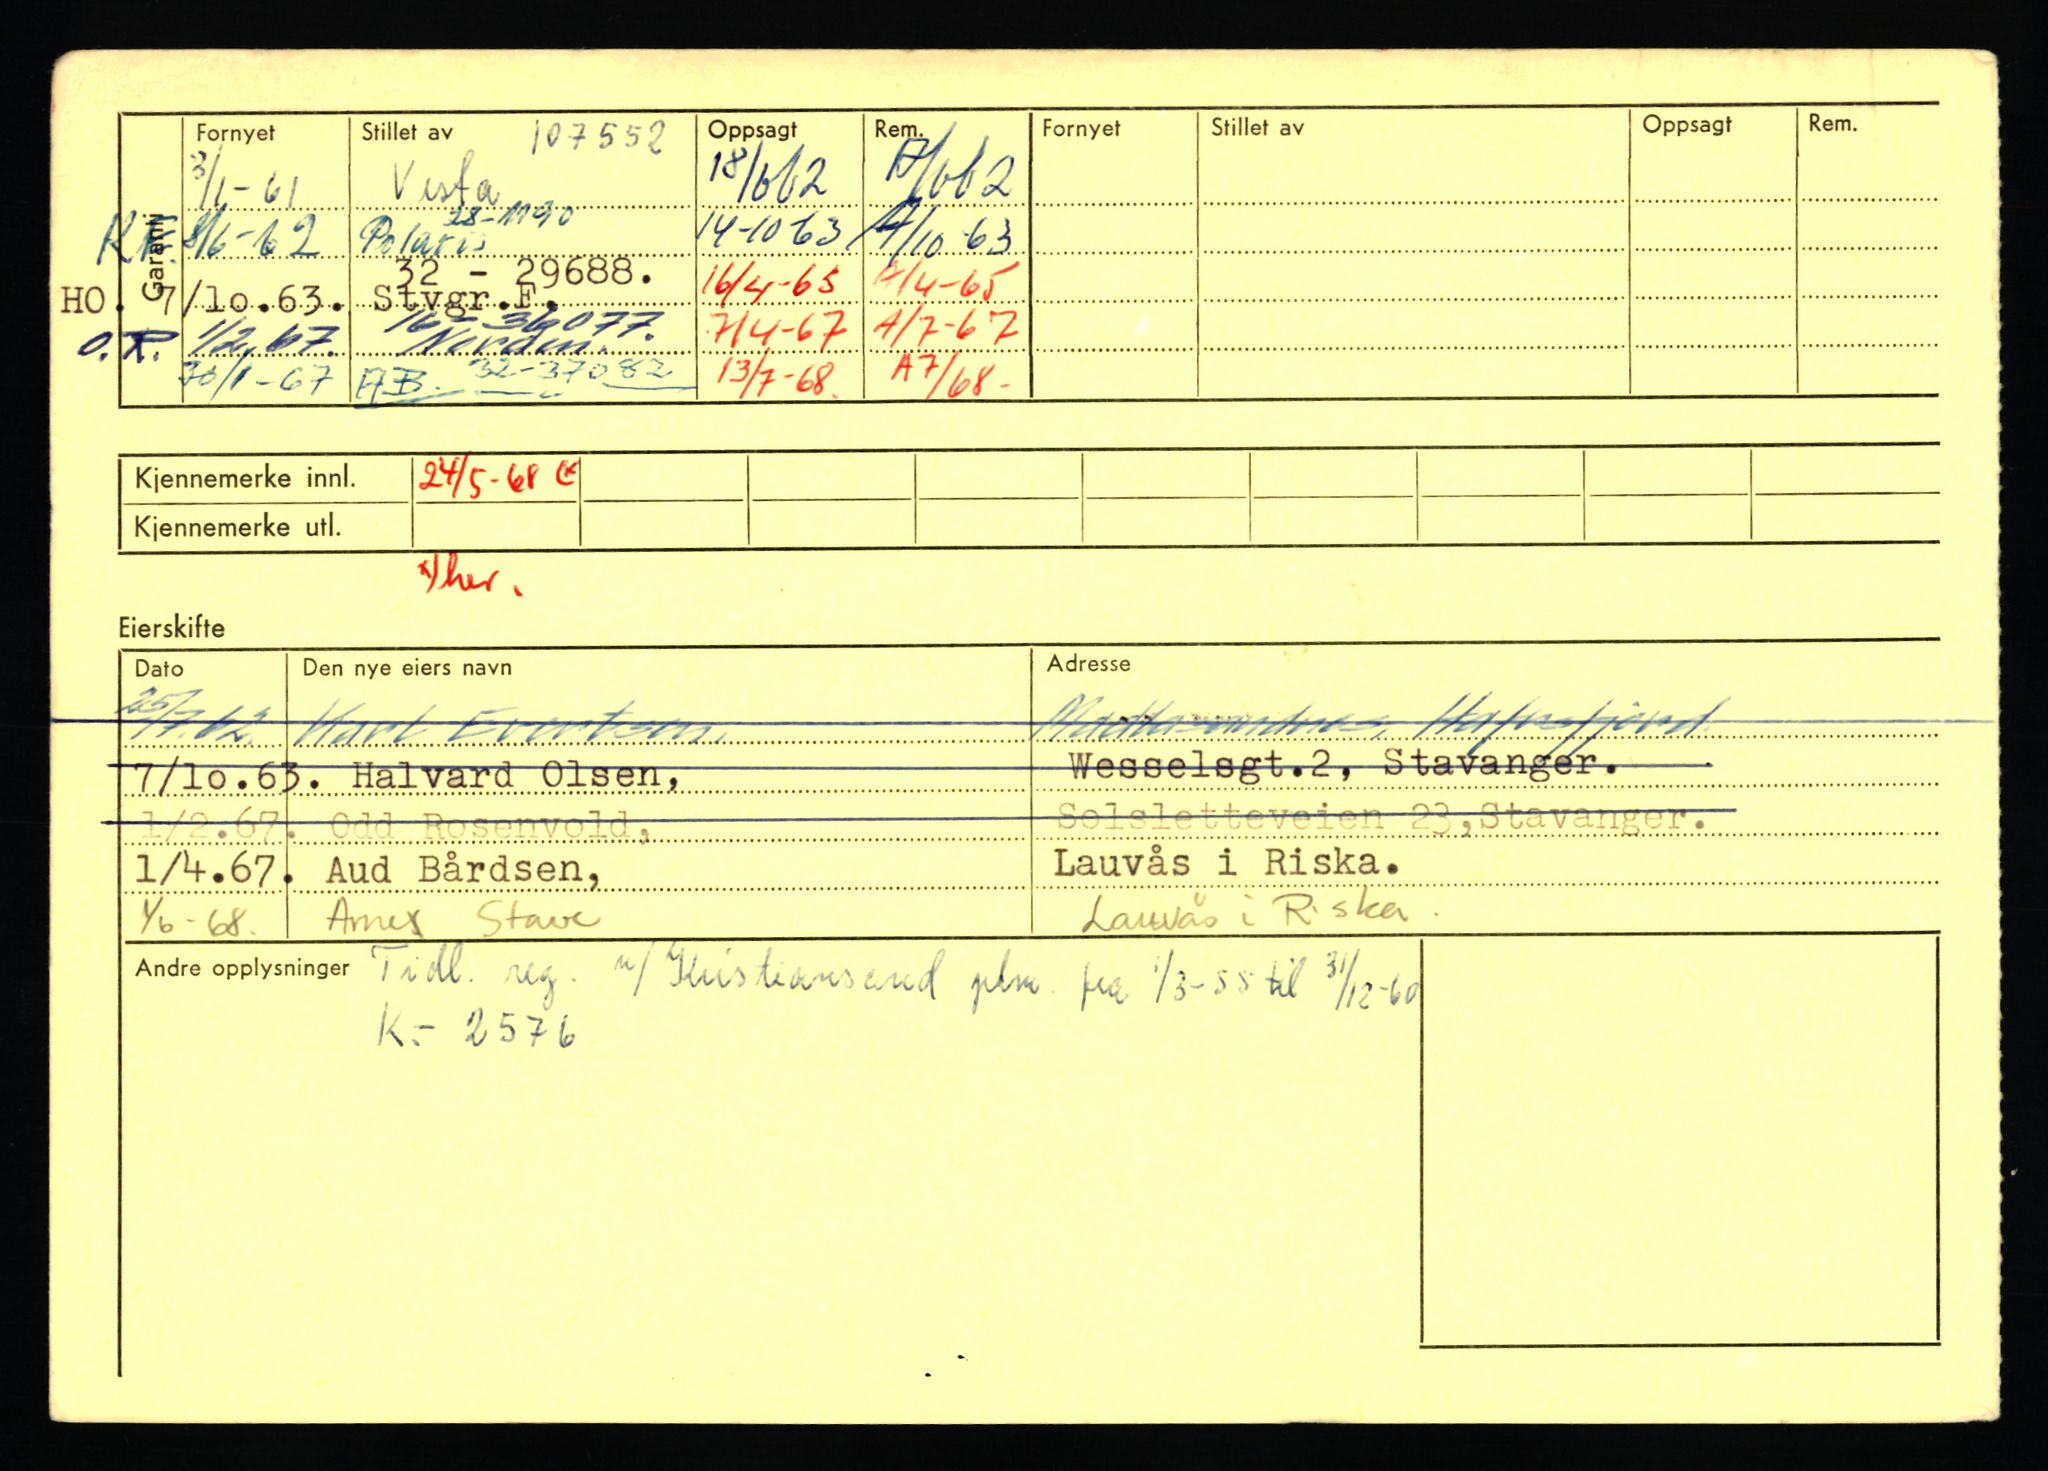 Garanti
Fornyet Stillet av 107552 Oppsagt Rem. Fornyet Stillet av Oppsagt Rem.
3/1-61 Vesta 18/662
28-11990
6-62 Polaris 14-10-63 A/10-63
32 - 29688.
HO. 7/lo.63. Stvgr.F. 16/4-65 A/4-65
16-36077.
O.R. 1/2.67. Norden. 7/4-67 A/7-67
30/1-67 AB. 32-37082 13/7-68. A7/68-
Kjennemerke innl. 24/5-68 (*
Kjennemerke utl.
*) her.
Eierskifte
Dato Den nye eiers navn Adresse
25/7.62. Karl Evertsen. Hafrsfjord.
7/lo.63. Halvard Olsen, Wesselsgt.2, Stavanger.
1/2.67. Odd Rosenvold, Solsletteveien 23,Stavanger.
1/4.67. Aud Bårdsen, Lauvås i Riska.
1/6-68. Stave Lauvås i Riska.
Andre opplysninger Tidl. reg. v/Kristiansand pkm. fra 1/3-55 til 31/12-60
K.- 2576